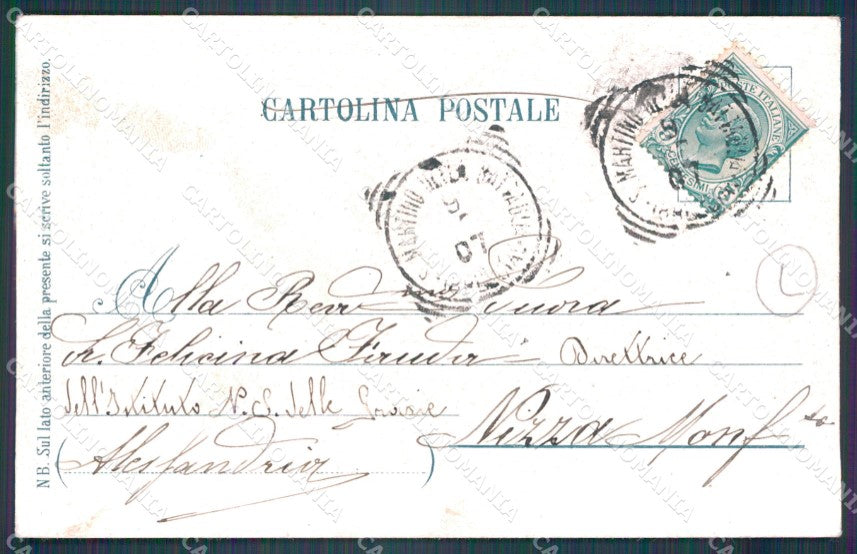 CARTOLINA POSTALE
POSTE ITALIANE
S. MARTINO DELLA BATTAGLIA
07
S. MARTINO DELLA BATTAGLIA
L
Alla Revd Suora
Sr. Felicina Direttrice
dell'Istituto N. S. delle Grazie
Nizza Monf to
(Alessandria)
NB. Sul lato anteriore della presente si scrive soltanto l'indirizzo.
CARTOLINOMANIA